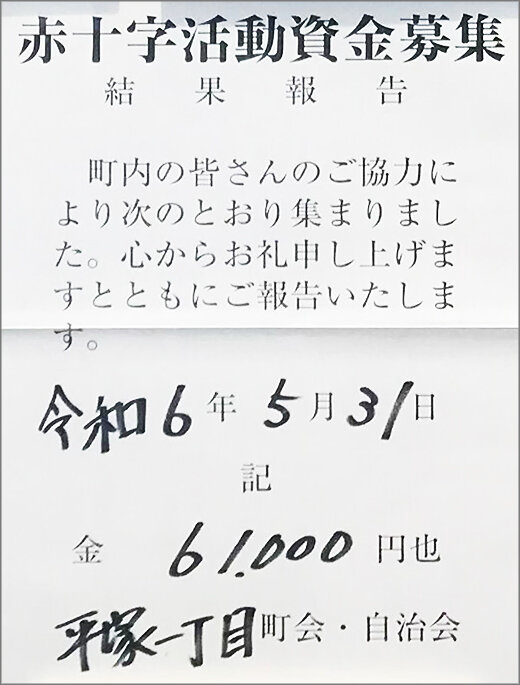 赤十字活動資金募集
結果報告
町内の皆さんのご協力に
より次のとおり集まりまし
た。心からお礼申し上げま
すとともにご報告いたしま
す。
令和6年5月31日
記
金 61.000円也
平塚一丁目町会・自治会